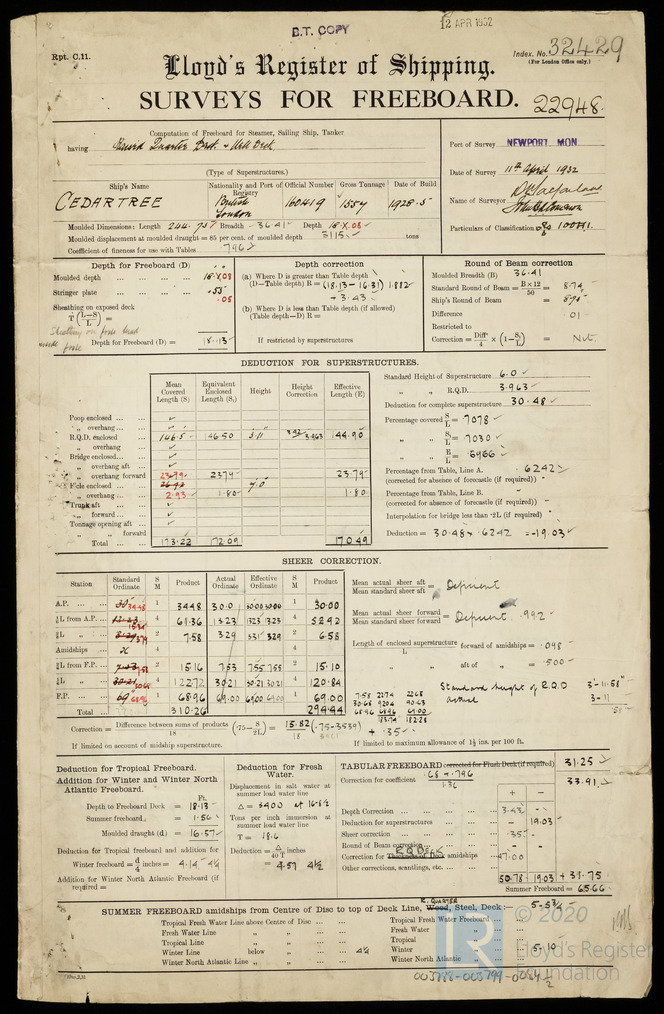 B.T. COPY
12 APR 1932
Rpt. C.11.
Index. No. 32429
(For London Office only.)
Lloyd's Register of Shipping.
SURVEYS FOR FREEBOARD. 22948.
Computation of Freeboard for Steamer, Sailing Ship, Tanker
having Raised Quarter Deck
(Type of Superstructures.)
Port of Survey NEWPORT MON.
Date of Survey 11th April 1932
Name of Surveyor
Particulars of Classification 100A1.
Ship's Name
Nationality and Port of Registry
Official Number
Gross Tonnage
Date of Build
CEDARTREE British London 160419 1554 1928.5
Moulded Dimensions: Length 244.75 Breadth 36.41 Depth
Moulded displacement at moulded draught = 85 per cent. of moulded depth 3115 tons
Coefficient of fineness for use with Tables .796
Depth for Freeboard (D)
Moulded depth
Stringer plate
.05
Sheathing on exposed deck
T (L-S / L) =
Depth for Freeboard (D) = 18.13
Depth correction
(a) Where D is greater than Table depth
(D—Table depth) R = (18.13 - 16.31) 1.882
+ 3.43
(b) Where D is less than Table depth (if allowed)
(Table depth—D) R =
If restricted by superstructures
Round of Beam correction
Moulded Breadth (B) 36.41
Standard Round of Beam = B×12 / 50 = 8.74
Ship's Round of Beam =
Difference .01
Restricted to
Correction = Diff / 4 × (1 - S₁/L) = Nil.
DEDUCTION FOR SUPERSTRUCTURES.
Mean Covered Length (S)
Equivalent Enclosed Length (S₁)
Height
Height Correction
Effective Length (E)
Poop enclosed
„ overhang
R.Q.D. enclosed 146.5 146.50 3.11 3.92/3.963 144.90
„ overhang
Bridge enclosed
„ overhang aft
„ overhang forward
23.79 23.79
F'cle enclosed 7.0
„ overhang 2.93 1.80 1.80
Trunk aft
„ forward
Tonnage opening aft
„ „ forward
Total 173.22 172.09 170.49
Standard Height of Superstructure 6.0
„ „ R.Q.D. 3.963
Deduction for complete superstructure 30.48
Percentage covered S/L = .7078
„ „ S₁/L = .7030
„ „ E/L = .6966
Percentage from Table, Line A. .6242
(corrected for absence of forecastle (if required))
Percentage from Table, Line B.
(corrected for absence of forecastle (if required))
Interpolation for bridge less than ·2L (if required)
Deduction = 30.48 × .6242 = -19.03
SHEER CORRECTION.
Station
Standard Ordinate
S M
Product
Actual Ordinate
Effective Ordinate
S M
Product
A.P. 34.48 1 34.48 30.0 30.00 30.00 1 30.00
⅙L from A.P. 4 61.36 13.23 4 52.42
⅓L „ 3.79 2 7.58 3.29 3.31 3.29 2 6.58
Amidships 4 4
⅓L from F.P. 7.58 2 15.16 7.53 7.55 7.55 2 15.10
⅙L „ 30.68 4 122.72 30.21 30.21 30.21 4 120.84
F.P. 68.96 1 68.96 69.00 69.00 69.00 1 69.00
Total 310.26 294.44
Correction = Difference between sums of products / 18 (·75 - S/2L) = 15.82 / 18 (.75 - .3539)
+ .35
If limited on account of midship superstructure.
If limited to maximum allowance of 1½ ins. per 100 ft.
Mean actual sheer aft / Mean standard sheer aft = Deficient
Mean actual sheer forward / Mean standard sheer forward = Deficient .992
Length of enclosed superstructure / L forward of amidships = .098
„ „ aft of „ = .500
Standard height of R.Q.D 3'-11.58"
actual 3'-11
7.58 22.74 22.65
30.68 92.04 90.63
68.96 68.96 69.00
183.74 182.28
Deduction for Tropical Freeboard.
Addition for Winter and Winter North Atlantic Freeboard.
Ft.
Depth to Freeboard Deck = 18.13
Summer freeboard = 1.56
Moulded draught (d) = 16.57
Deduction for Tropical freeboard and addition for Winter freeboard = d/4 inches = 4.14 4¼
Addition for Winter North Atlantic Freeboard (if required) =
Deduction for Fresh Water.
Displacement in salt water at summer load water line
Δ = 3400 at 16.8½
Tons per inch immersion at summer load water line
T = 18.6
Deduction = Δ / 40 T inches
= 4.57 4½
TABULAR FREEBOARD corrected for Flush Deck (if required) 31.25
Correction for coefficient .68 + .796 / 1.36 33.91
+ -
Depth Correction 3.43 -
Deduction for superstructures - 19.03
Sheer correction .35 -
Round of Beam correction
Correction for Thickness of Deck amidships R.Q DECK 47.00
Other corrections, scantlings, etc.
50.78 19.03 + 31.75
Summer Freeboard = 65.66
SUMMER FREEBOARD amidships from Centre of Disc to top of Deck Line, Wood, Steel, Deck :— R. QUARTER 5-5¾
Tropical Fresh Water Line above Centre of Disc
Fresh Water Line „ „
Tropical Line „ „
Winter Line below „ 4¼
Winter North Atlantic Line „ „
Tropical Fresh Water Freeboard
Fresh Water „
Tropical „
Winter „ 5-10
Winter North Atlantic „
© 2020
LR
Lloyd's Register
Foundation
003788-003799-0034½